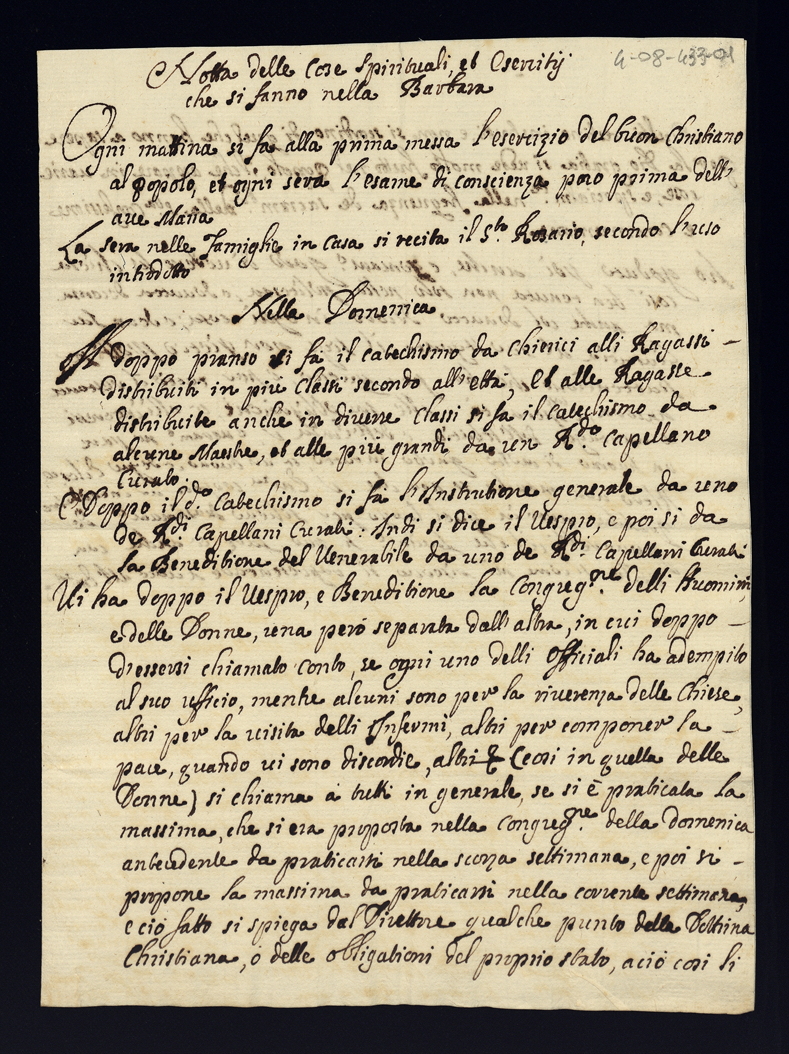 4-08-433-01
Notta delle Cose Spirituali, et Esercitÿ
che si fanno nella Barbara
Ogni mattina si fa alla prima messa l'esercizio del buon Christiano
al popolo, et ogni sera l'esame di conscienza poco prima dell'
ave Maria
La sera nelle Famiglie in casa si recita il S.to Rosario, secondo l'uso
introdotto
Nella Domenica
doppo pranso si fa il catechismo da Chierici alli Ragassi -
distribuiti in più classi secondo all'età, et alle Ragasse
distribuite anche in diverse classi si fa il catechismo da
alcune Maestre, et alle più grandi da un R.do Capellano
Curato.
Doppo il d.o Catechismo si fa l'Instrutione generale da uno
de R.di Capellani Curati: Indi si dice il Vespro, e poi si da
la Beneditione del Venerabile da uno de R.di Capellani Curati
Vi ha doppo il Vespro, e Beneditione la Congreg.ne delli Huomini,
e delle Donne, una però separata dall'altra, in cui doppo -
d'essersi chiamato conto, se ogni uno delli Officiali ha adempito
al suo ufficio, mentre alcuni sono per la riverenza delle Chiese,
altri per la visita delli Infermi, altri per componer la -
pace, quando vi sono discordie, altri & (cosi in quella delle
Donne) si chiama a tutti in generale, se si è praticata la
massima, che si era proposta nella Congreg.ne della Domenica
antecedente da praticarsi nella scorsa settimana, e poi si -
propone la massima da praticarsi nella corrente settimana,
e ciò fatto si spiega dal Direttore qualche punto della Dottrina
Christiana, o delle obligationi del proprio stato, aciò cosi li